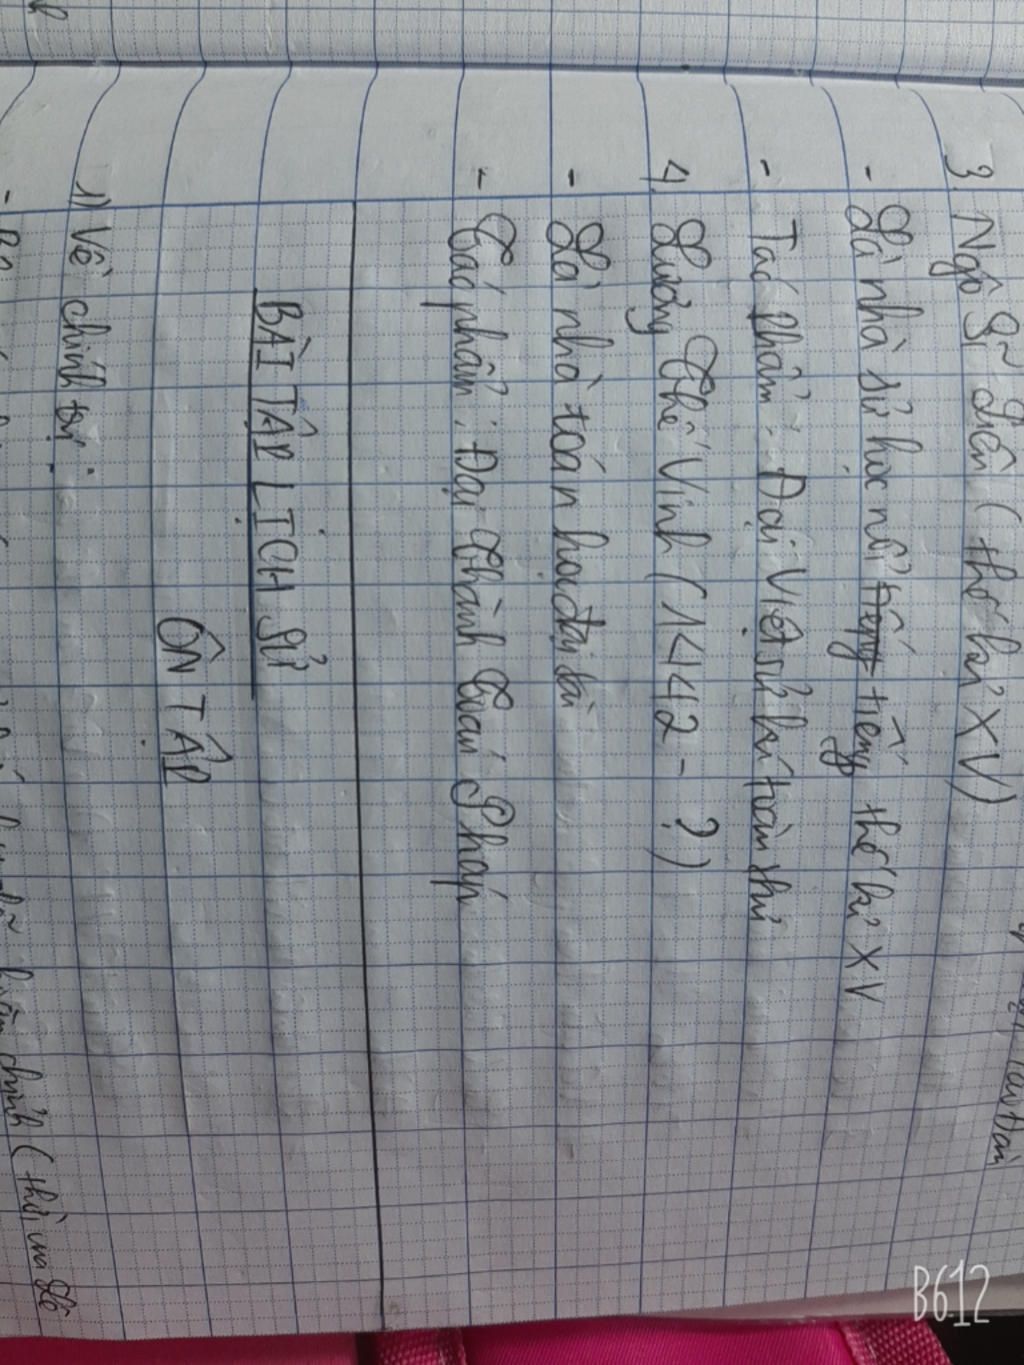 3. Ngô Sĩ Liên (thế kỉ XV)
- Là nhà sử học nổi tiếng thế kỉ XV
- Tác phẩm: Đại Việt sử kí toàn thư
4. Lương Thế Vinh (1442 - ?)
- Là nhà toán học đại tài
- Tác phẩm: Đại Thành Toán Pháp
BÀI TẬP LỊCH SỬ
ÔN TẬP
1) Về chính trị:
chỉnh (thời vua Lê
B612